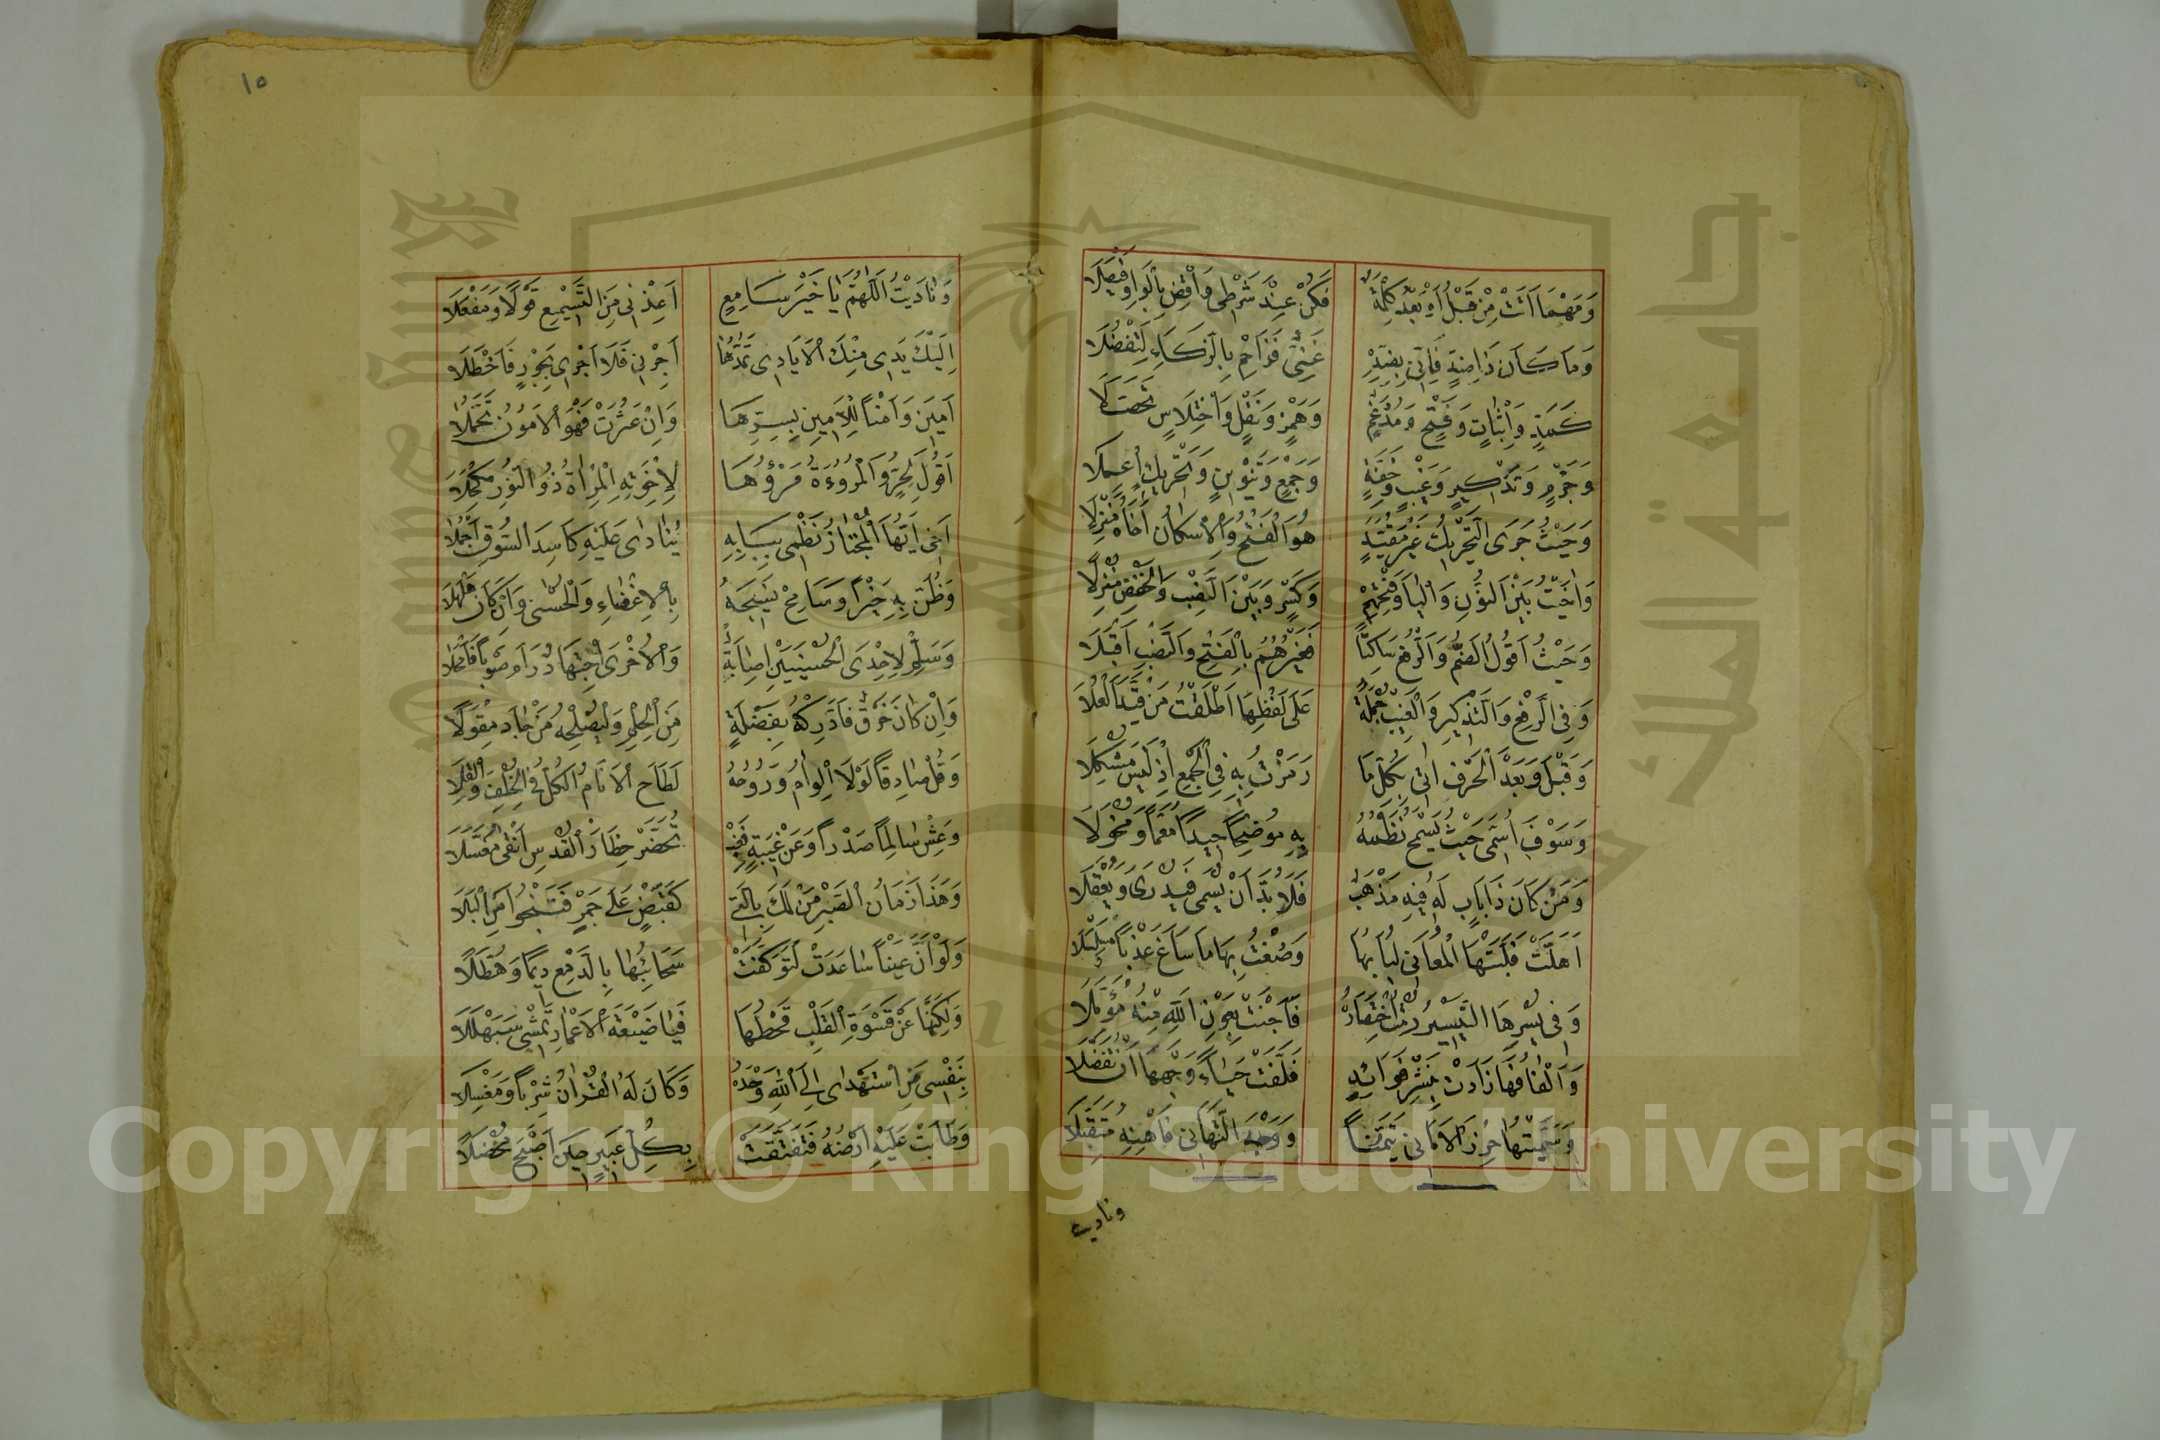 وَمَهْمَا اَتَتْ مِنْ قَبْلُ اَوْ بَعْدُ كِلْمَةٌ فَكُنْ عِنْدَ شَرْطِي وَاقْضِ بِالْوَاوِ فَيْصَلَا
وَمَا كَانَ ذَا ضِدٍّ فَاِنِّي بِضِدِّهِ غَنِيٌّ فَزَاحِمْ بِالذَّكَاءِ لِتَفْضُلَا
كَمَدٍّ وَاِثْبَاتٍ وَفَتْحٍ وَمُدْغَمٍ وَهَمْزٍ وَنَقْلٍ وَاخْتِلَاسٍ تَحَصَّلَا
وَجَزْمٍ وَتَذْكِيرٍ وَغَيْبٍ وَخِفَّةٍ وَجَمْعٍ وَتَنْوِينٍ وَتَحْرِيكٍ اُعْمِلَا
وَحَيْثُ جَرَى التَّحْرِيكُ غَيْرَ مُقَيَّدٍ هُوَ الْفَتْحُ وَالْاِسْكَانُ اٰخَاهُ مَنْزِلَا
وَاٰخَيْتُ بَيْنَ النُّونِ وَالْيَا وَفَتْحِهِمْ وَكَسْرٍ وَبَيْنَ النَّصْبِ وَالْخَفْضِ مُنْزِلَا
وَحَيْثُ اَقُولُ الضَّمُّ وَالرَّفْعُ سَاكِتًا فَغَيْرُهُمُ بِالْفَتْحِ وَالنَّصْبِ اَقْبَلَا
وَفِي الرَّفْعِ وَالتَّذْكِيرِ وَالْغَيْبِ جُمْلَةٌ عَلَى لَفْظِهَا اَطْلَقْتُ مَنْ قَيَّدَ الْعُلَا
وَقَبْلَ وَبَعْدَ الْحَرْفِ اٰتِي بِكُلِّ مَا رَمَزْتُ بِهِ فِي الْجَمْعِ اِذْ لَيْسَ مُشْكِلَا
وَسَوْفَ اُسَمِّي حَيْثُ يَسْمَحُ نَظْمُهُ بِهِ مُوضِحًا جِيدًا مُعَمًّا وَمُخْوَلَا
وَمَنْ كَانَ ذَا بَابٍ لَهُ فِيهِ مَذْهَبٌ فَلَا بُدَّ اَنْ يُسْمَى فَيُدْرَى وَيُعْقَلَا
اَهَلَّتْ فَلَبَّتْهَا الْمَعَانِي لُبَابُهَا وَصُغْتُ بِهَا مَا سَاغَ عَذْبًا مُسَلْسَلَا
وَفِي يُسْرِهَا التَّيْسِيرُ رُمْتُ اخْتِصَارَهُ فَاَجْنَتْ بِعَوْنِ اللّٰهِ مِنْهُ مُؤَمَّلَا
وَاَلْفَافُهَا زَادَتْ بِنَشْرِ فَوَائِدٍ فَلَفَّتْ حَيَاءً وَجْهَهَا اَنْ تُفَضَّلَا
وَسَمَّيْتُهَا حِرْزَ الْاَمَانِي تَيَمُّنًا وَوَجْهَ التَّهَانِي فَاهْنِهِ مُتَقَبِّلَا
وناديت
١٥
وَنَادَيْتُ اَللّٰهُمَّ يَا خَيْرَ سَامِعٍ اَعِذْنِي مِنَ التَّسْمِيعِ قَوْلًا وَمَفْعَلَا
اِلَيْكَ يَدِي مِنْكَ الْاَيَادِي تَمُدُّهَا اَجِرْنِي فَلَا اَجْرِي بِجَوْرٍ فَاَخْطَلَا
اَمِينَ وَاَمْنًا لِلْاَمِينِ بِسِرِّهَا وَاِنْ عَثَرَتْ فَهْوَ الْاَمُونُ تَحَمُّلَا
اَقُولُ لِحُرٍّ وَالْمُرُوءَةُ مَرْؤُهَا لِاِخْوَتِهِ الْمِرْاٰةُ ذُو النُّورِ مِكْحَلَا
اَخِي اَيُّهَا الْمُجْتَازُ نَظْمِي بِبَابِهِ يُنَادَى عَلَيْهِ كَاسِدَ السُّوقِ اَجْمِلَا
وَظُنَّ بِهِ خَيْرًا وَسَامِحْ نَسِيجَهُ بِالْاِغْضَاءِ وَالْحُسْنَى وَاِنْ كَانَ هَلْهَلَا
وَسَلِّمْ لِاِحْدَى الْحُسْنَيَيْنِ اِصَابَةٌ وَالْاُخْرَى اجْتِهَادٌ رَامَ صَوْبًا فَاَمْحَلَا
وَاِنْ كَانَ خَرْقٌ فَادَّرِكْهُ بِفَضْلَةٍ مِنَ الْحِلْمِ وَلْيُصْلِحْهُ مَنْ جَادَ مِقْوَلَا
وَقُلْ صَادِقًا لَوْلَا الْوِاٰمُ وَرُوحُهُ لَطَاحَ الْاَنَامُ الْكُلُّ فِي الْخُلْفِ وَالْقِلَا
وَعِشْ سَالِمًا صَدْرًا وَعَنْ غِيبَةٍ فَغِبْ تُحَضَّرْ حِظَارَ الْقُدْسِ اَنْقَى مُغَسَّلَا
وَهَذَا زَمَانُ الصَّبْرِ مَنْ لَكَ بِالَّتِي كَقَبْضٍ عَلَى جَمْرٍ فَتَنْجُو مِنَ الْبَلَا
وَلَوْ اَنَّ عَيْنًا سَاعَدَتْ لَتَوَكَّفَتْ سَحَائِبُهَا بِالدَّمْعِ دِيمًا وَهُطَّلَا
وَلٰكِنَّهَا عَنْ قَسْوَةِ الْقَلْبِ قَحْطُهَا فَيَا ضَيْعَةَ الْاَعْمَارِ تَمْشِي سَبَهْلَلَا
بِنَفْسِي مَنِ اسْتَهْدَى اِلَى اللّٰهِ وَحْدَهُ وَكَانَ لَهُ الْقُرْاٰنُ شِرْبًا وَمَغْسِلَا
وَطَابَتْ عَلَيْهِ اَرْضُهُ فَتَفَتَّقَتْ بِكُلِّ عَبِيرٍ حِينَ اَصْبَحَ مُخْضَلَا
Copyright © King Saud University